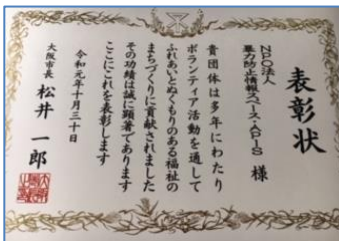 表彰状
NPO法人
暴力防止情報スペース・APIS 様
貴団体は多年にわたり
ボランティア活動を通して
ふれあいとぬくもりのある福祉の
まちづくりに貢献されました
その功績は誠に顕著であります
ここにこれを表彰します
令和元年十月三十日
大阪市長 松井 一郎